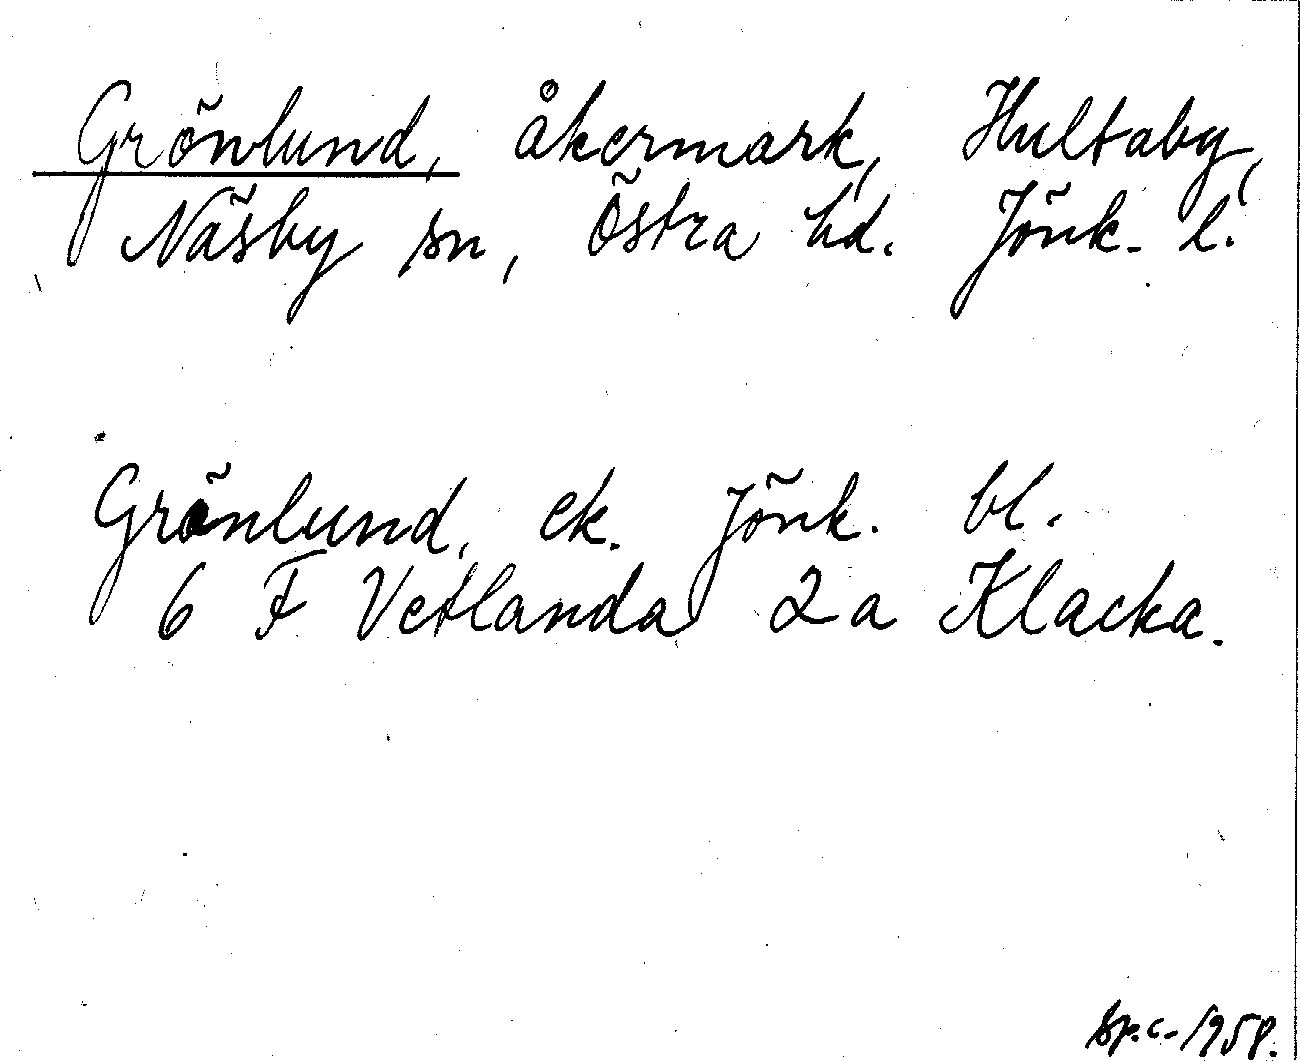 Grönlund, åkermark, Hultaby,
Näsby sn, Östra hd. Jönk. l.
Grönlund, ek. Jönk. bl.
6 F Vetlanda 2a Klacka.
Sp.c. 1958.